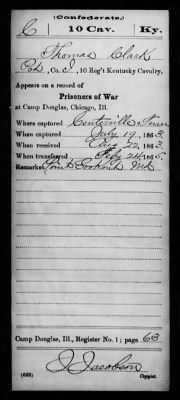 (Confederate.)
C 10 Cav. Ky.
Thomas Clark
Co. , 10 Reg't Kentucky Cavalry.
Appears on a record of
Prisoners of War
at Camp Douglas, Chicago, Ill.
Where captured Centerville
When captured July 19, 1863.
When received Aug 22, 1863.
When transferred Feb 24, 1865.
Remarks: Point Lookout Md
Camp Douglas, Ill., Register No. 1; page 63
J. Jacobson
Copyist.